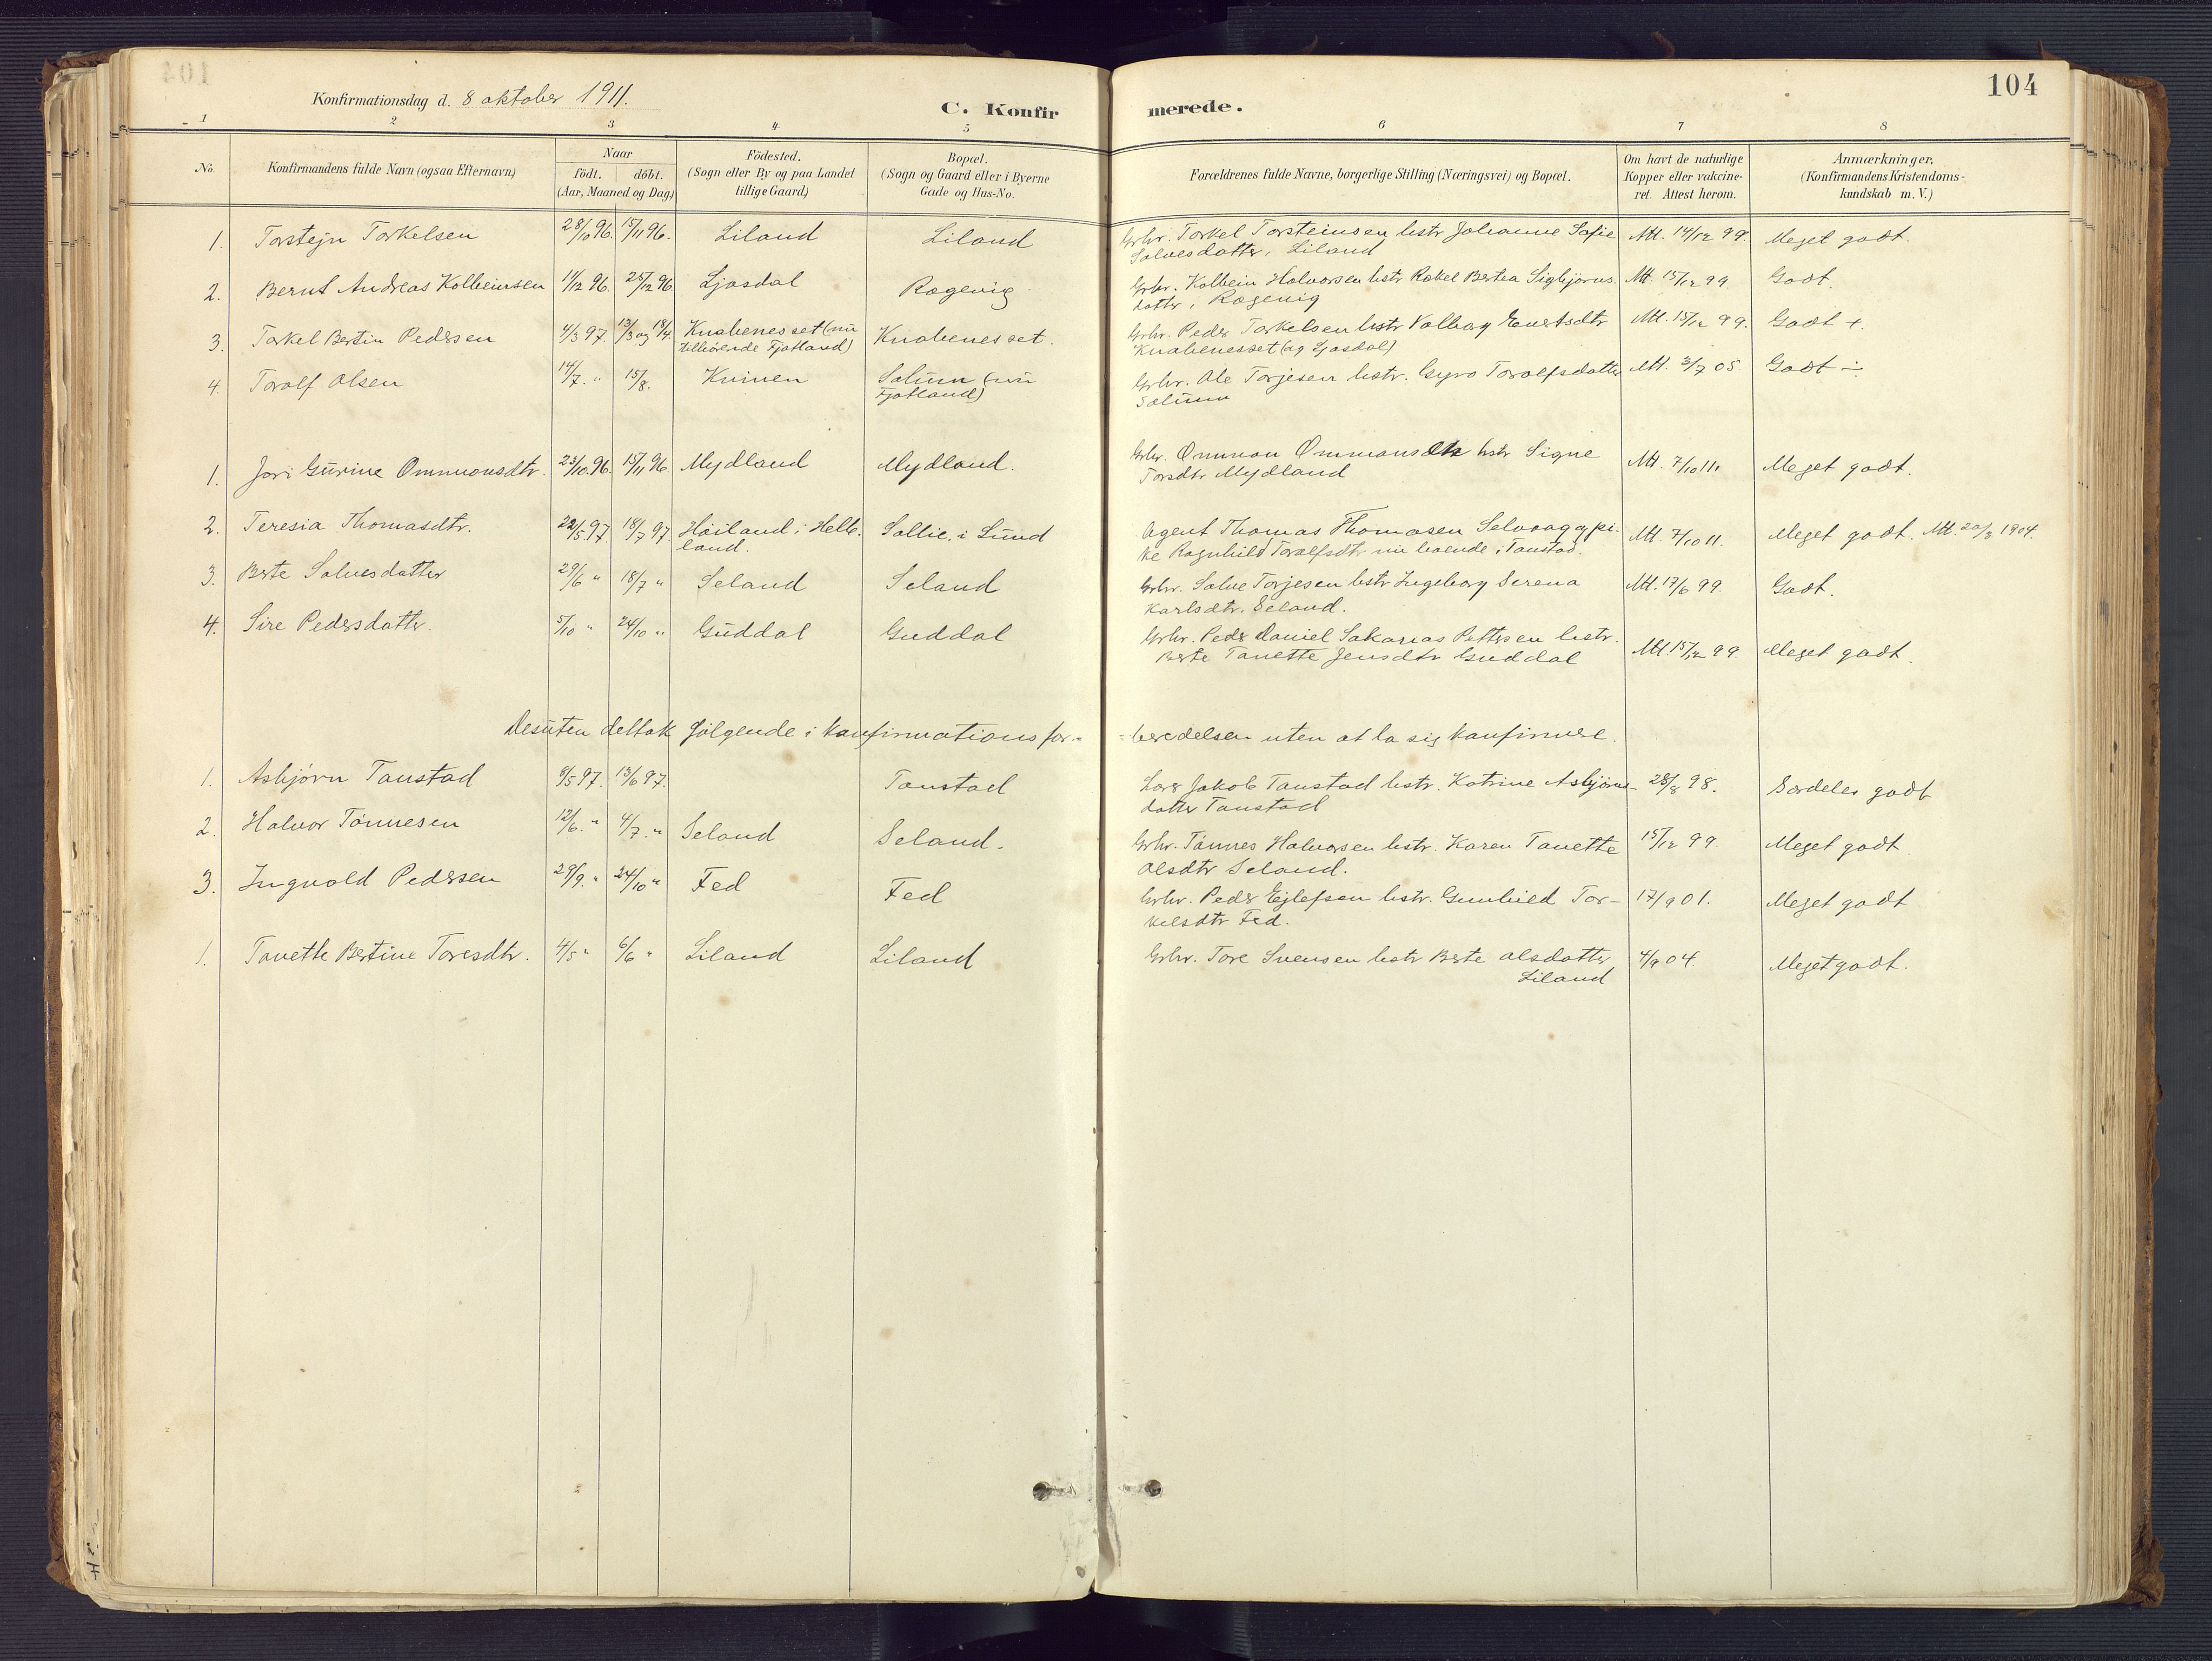 104
Konfirmationsdag d. 8 oktober 1911.
C. Konfirmerede.
1 2 3 4 5 6 7 8
No. Konfirmandens fulde Navn (ogsaa Efternavn) Naar födt. döbt. (Aar, Maaned og Dag) Födested. (Sogn eller By og paa Landet tillige Gaard) Bopæl. (Sogn og Gaard eller i Byerne Gade og Hus-No. Forældrenes fulde Navne, borgerlige Stilling (Næringsvei) og Bopæl. Om havt de naturlige Kopper eller vakcineret. Attest herom. Anmærkninger. (Konfirmandens Kristendomskundskab m. V.)
1. Torstejn Torkelsen 28/10 96. 15/11 96. Liland Liland Grbr. Torkel Torsteinsen hstr Johanne Sofie Att. 14/12 99. Meget godt.
Salvesdatter, Liland
2. Bernt Andreas Kolbeinsen 11/12 96. 25/12 96 Ljosdal Rogenig Grbr. Kolbein Halvorsen hstr Rakel Bertea Sigbjörns- Att. 15/12 99. Godt.
datter, Rogenig
3. Torkel Bertin Pedersen 4/3 97. 13/3 og 18/4. Knabenesset (nu Knabenesset. Grbr. Peder Torkelsen hstr Valborg Evertsdtr Att. 15/12 99. Godt +.
tilhörende Fjotland) Knabenesset (og Ljosdal)
4. Torolf Olsen 14/7. " 15/8. Kvinen Solum (nu Grbr. Ole Torjesen hstr. Gyro Torolfsdatter Att. 3/7 05. Godt ÷.
Fjotland) Solum
1. Jori Gurine Ommonsdtr. 23/10 96. 15/11 96. Mydland Mydland. Grbr. Ommon Ommonsen hstr Signe Att. 7/10 11. Meget godt.
Torsdtr Mydland
2. Teresia Thomasdtr. 22/5 97. 18/7 97. Höiland i Helle- Sollie, i Lund Agent Thomas Thomasen Selvaag og pi- Att 7/10 11. Meget godt. Att. 20/3 1904.
land. ke Ragnhild Torolfsdtr nu boende i Tonstad.
3. Berte Salvesdatter 29/6 " 18/7 " Seland Seland Grbr. Salve Torjesen hstr Ingeborg Serena Att. 17/6 99. Godt.
Karlsdtr. Seland.
4. Sire Pedersdatter. 5/10 " 24/10 " Guddal Guddal Grbr. Peder Daniel Sakarias Pettersen hstr. Att 15/12 99. Meget godt.
Berte Tanette Jensdtr Guddal
Desuten deltok fölgende i konfirmationsfor-=beredelsen uten at la sig konfirmere.
1. Asbjörn Tonstad 8/5 97. 13/6 97. Tonstad Lars Jakob Tonstad hstr. Katrine Asbjörns- 28/8 98. Særdeles godt
datter Tonstad
2. Halvor Tönnesen 12/6. " 4/7. " Seland Seland. Grbr. Tönnes Halvorsen hstr. Karen Tanette 15/12 99. Meget godt.
Olsdtr Seland.
3. Ingvald Pedersen 29/9. " 24/10 " Fed Fed Grbr. Peder Ejlefsen hstr. Gunhild Tor- 17/9 01. Meget godt
kelsdtr Fed.
1. Tanette Bertine Toresdtr. 4/5 " 6/6 " Liland Liland Grbr. Tore Svensen hstr Berte Olsdatter 4/9 04. Meget godt.
Liland